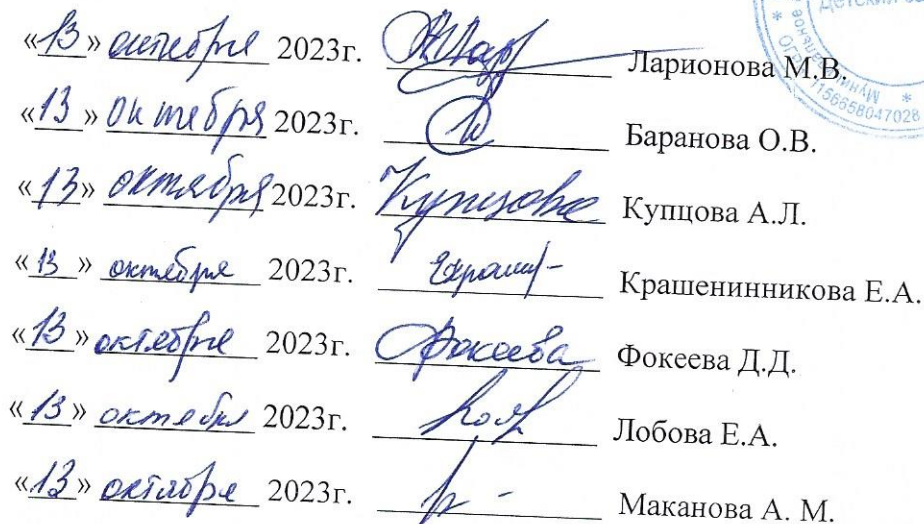 Детский са
Муниципальное
* ОГРН 1156658047028 *
«13» октября 2023г. Ларионова М.В.
«13» октября 2023г. Баранова О.В.
«13» октября 2023г. Купцова Купцова А.Л.
«13» октября 2023г. Крашенинникова Е.А.
«13» октября 2023г. Фокеева Фокеева Д.Д.
«13» октября 2023г. Лобова Е.А.
«13» октября 2023г. Маканова А. М.